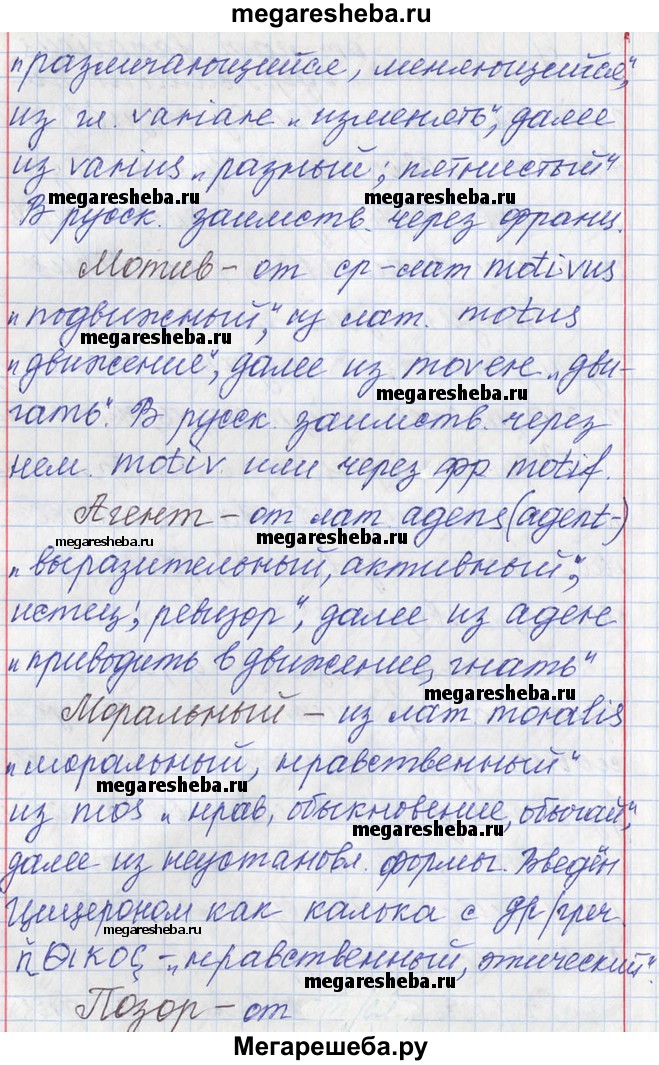 megaresheba.ru
„различающийся, меняющийся“,
из гл. variare „изменять“, далее
из varius „разный; пятнистый“
megaresheba.ru megaresheba.ru
В русск. заимств. через франц.
Мотив – от ср-лат motivus
„подвижный“, из лат. motus
megaresheba.ru
„движение“, далее из movere „дви-
megaresheba.ru
гать“. В русск. заимств. через
нем. motiv или через фр motif.
Агент – от лат agens (agent-)
megaresheba.ru megaresheba.ru
„выразительный, активный“;
истец; ревизор“, далее из agere
„приводить в движение, гнать“
megaresheba.ru
Моральный – из лат moralis
„моральный, нравственный“
megaresheba.ru
из mos „нрав, обыкновение, обычай“,
megaresheba.ru
далее из неустановл. формы. Введён
Цицероном как калька с др/греч.
megaresheba.ru
ἠθικος – „нравственный, этический“
Позор – от
Мегарешеба.ру